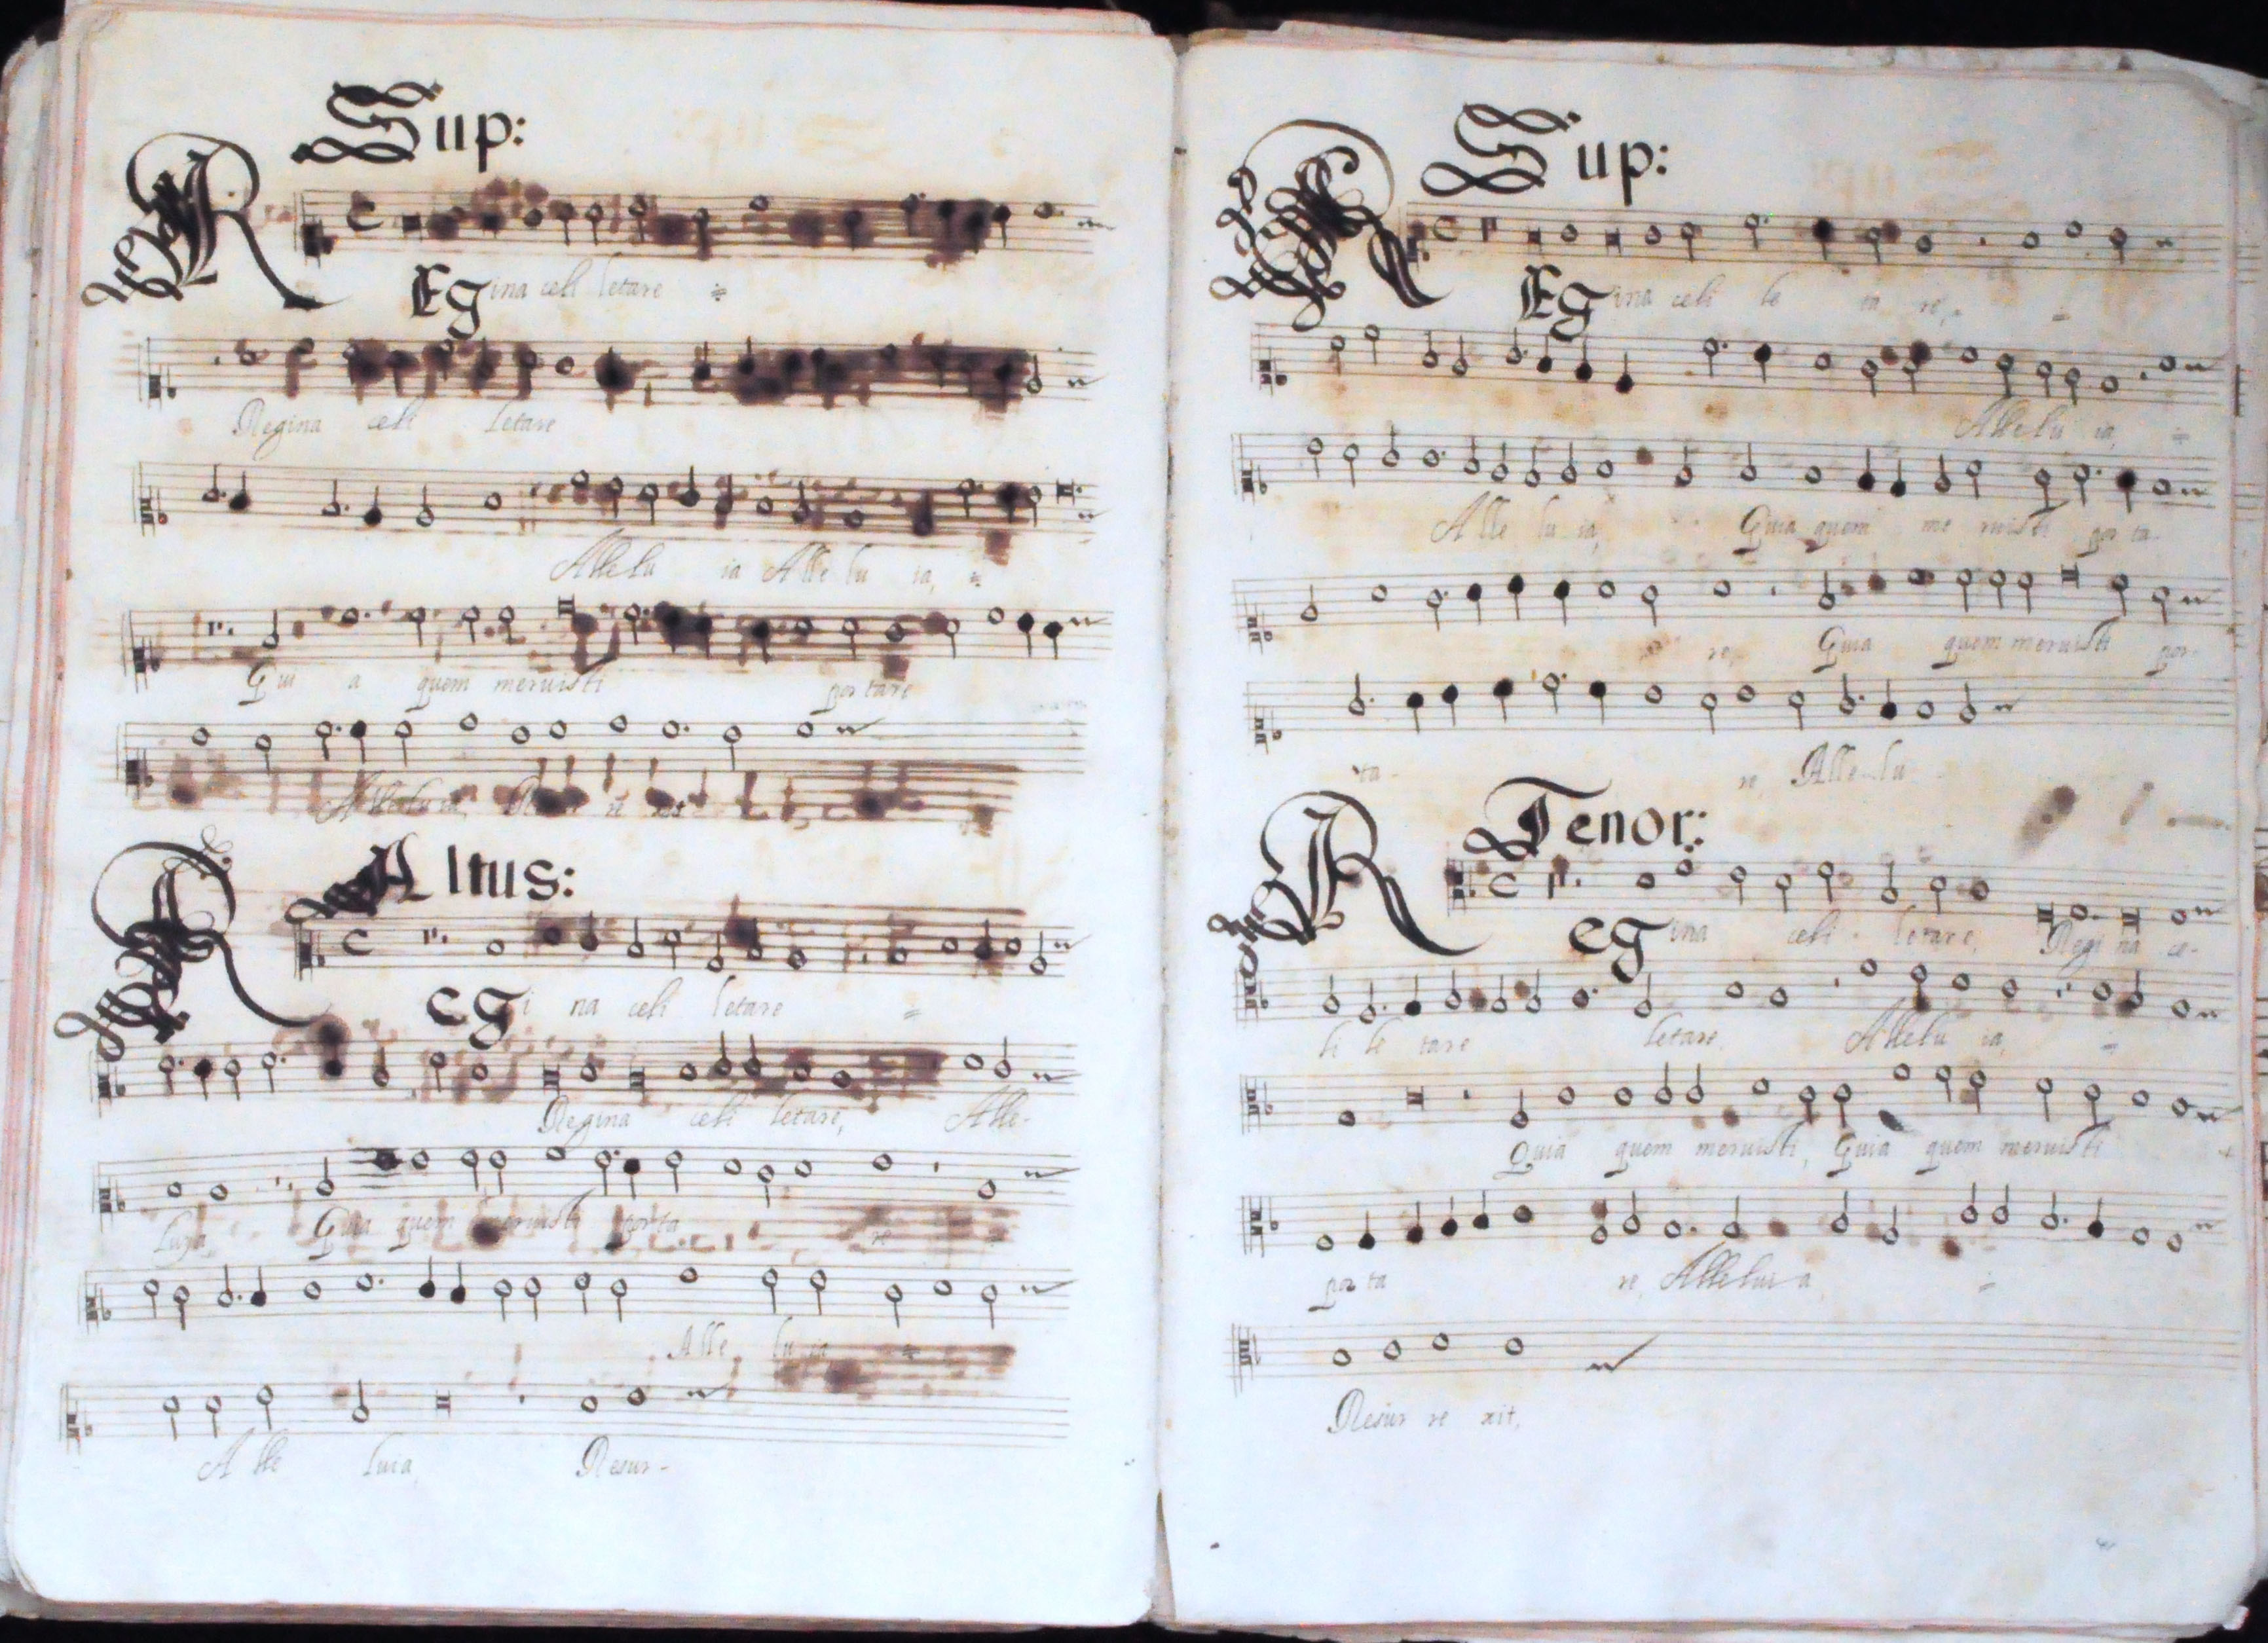 Sup:
REgina celi letare
Regina celi letare
Allelu ia Alle lu ia,
Qui a quem meruisti portare
Alleluia,
Altus:
Regi na celi letare
Regina celi letare, Alle-
luya, Quia quem meruisti porta re
Alle lu ia
A lle luia, Resur-
Sup:
REgina celi le ta re,
Allelu ia,
A lle lu ia, Quia quem me ruisti por ta-
re, Quia quem meruisti por-
ta- re, Alle-lu
Tenor:
Regina celi letare, Regi na ce-
li le tare letare, Allelu ia,
Quia quem meruisti, Quia quem meruisti
por ta re, Allelui a
Resur re xit,